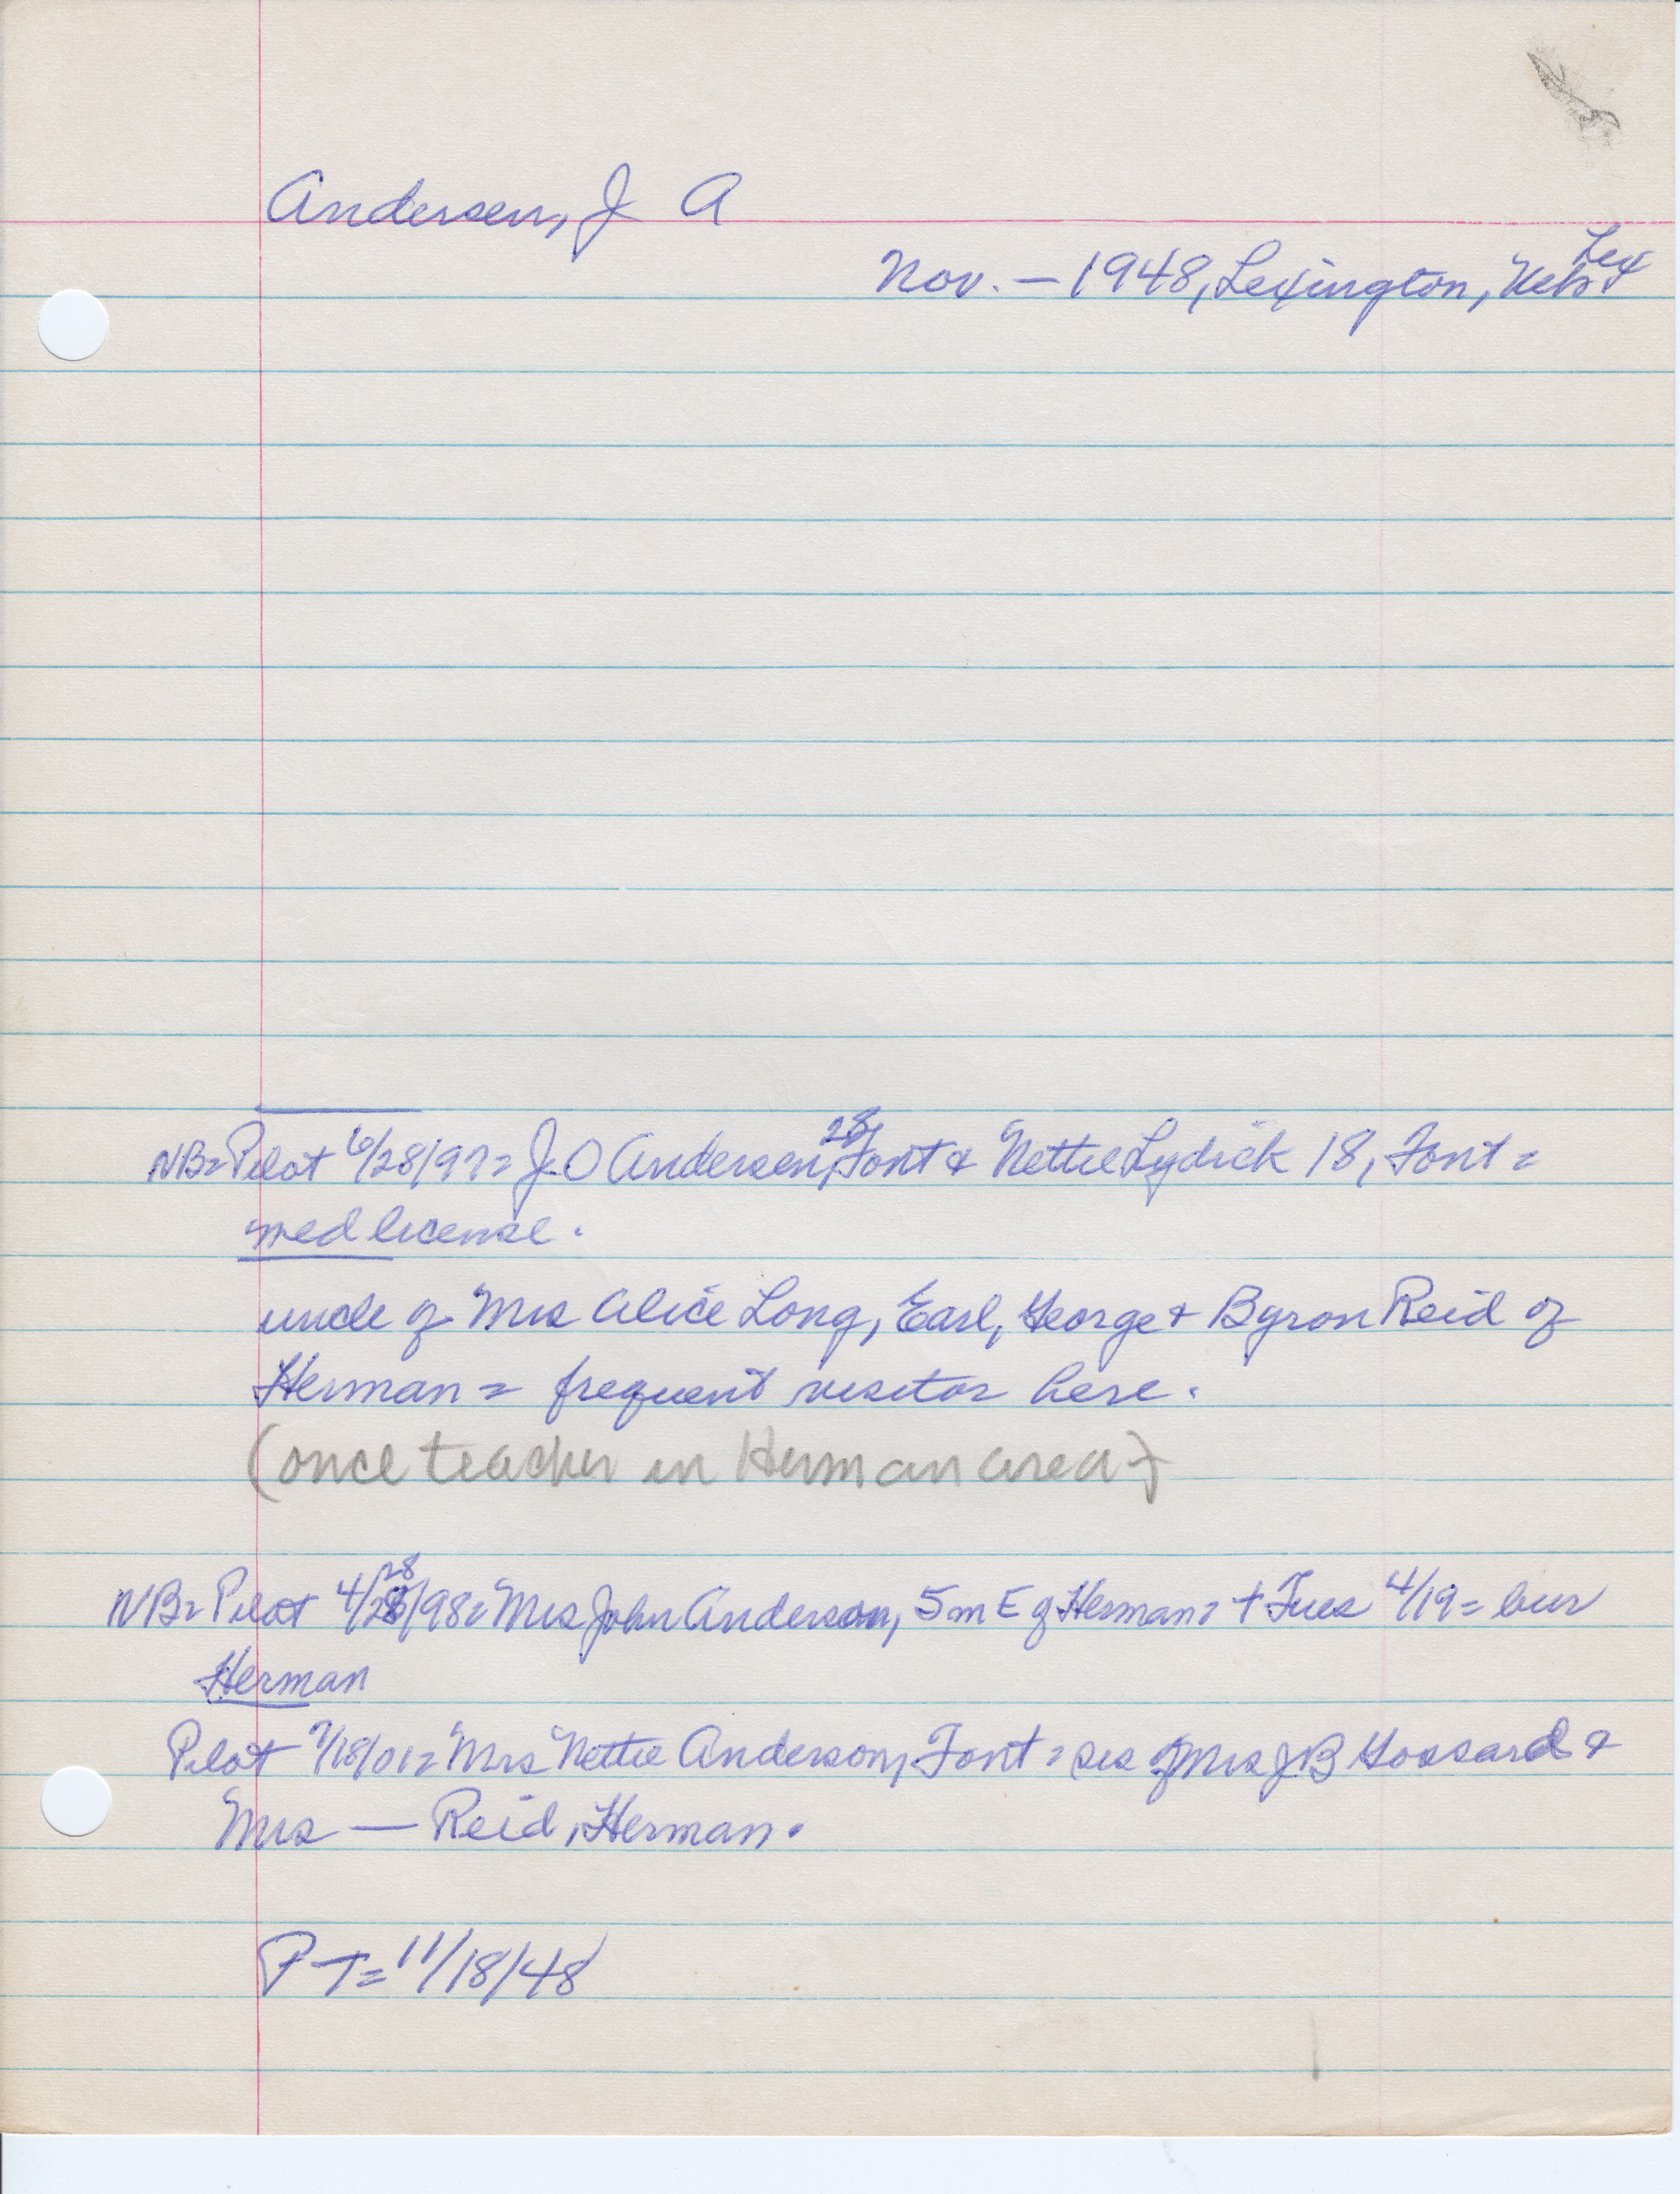 Andersen, J A
Nov. — 1948, Lexington, Neb + Lex
NB = Pilot 6/28/97 = J O Andersen, 28, Font & Nettie Lydick 18, Font =
med license.
uncle of Mrs Alice Long, Earl, George + Byron Reid of
Herman = frequent visitor here.
(once teacher in Herman area)
NB = Pilot 4/28/98 = Mrs John Anderson, 5 m E of Herman = + Tues 4/19 = bur
Herman
Pilot 7/18/01 = Mrs Nettie Anderson, Font = sis of Mrs J B Gossard &
Mrs — Reid, Herman.
P T = 11/18/48